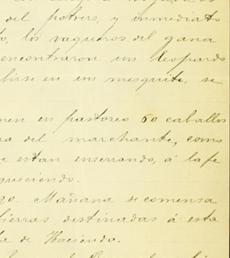 del potrero, y inmediato
to, los vaqueros del gana
encontraron un leopardo
birse en un mesquite, se
nen en pastoreo 60 caballos
ra del marchante, como
e estan enserrando, á la fe
queciendo.
go. Mañana se comensa
tierras destinadas á esta
ta de Hacienda.